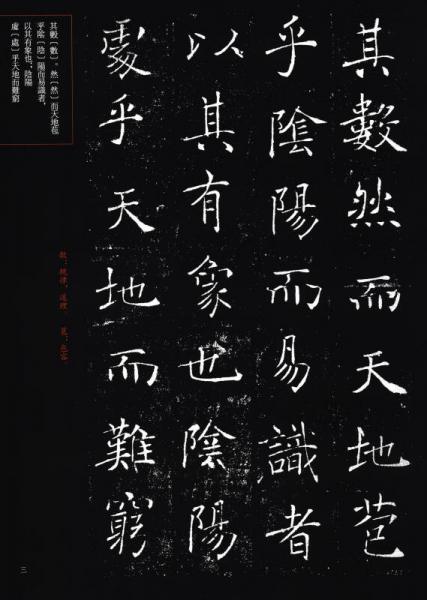 其數然而天地苞
乎陰陽而易識者
以其有象也陰陽
處乎天地而難窮
其數〔數〕。然〔然〕而天地苞
乎陰〔陰〕陽而易識者，
以其有象也。陰陽
處〔處〕乎天地而難窮
數：規律，道理 苞：包容
三